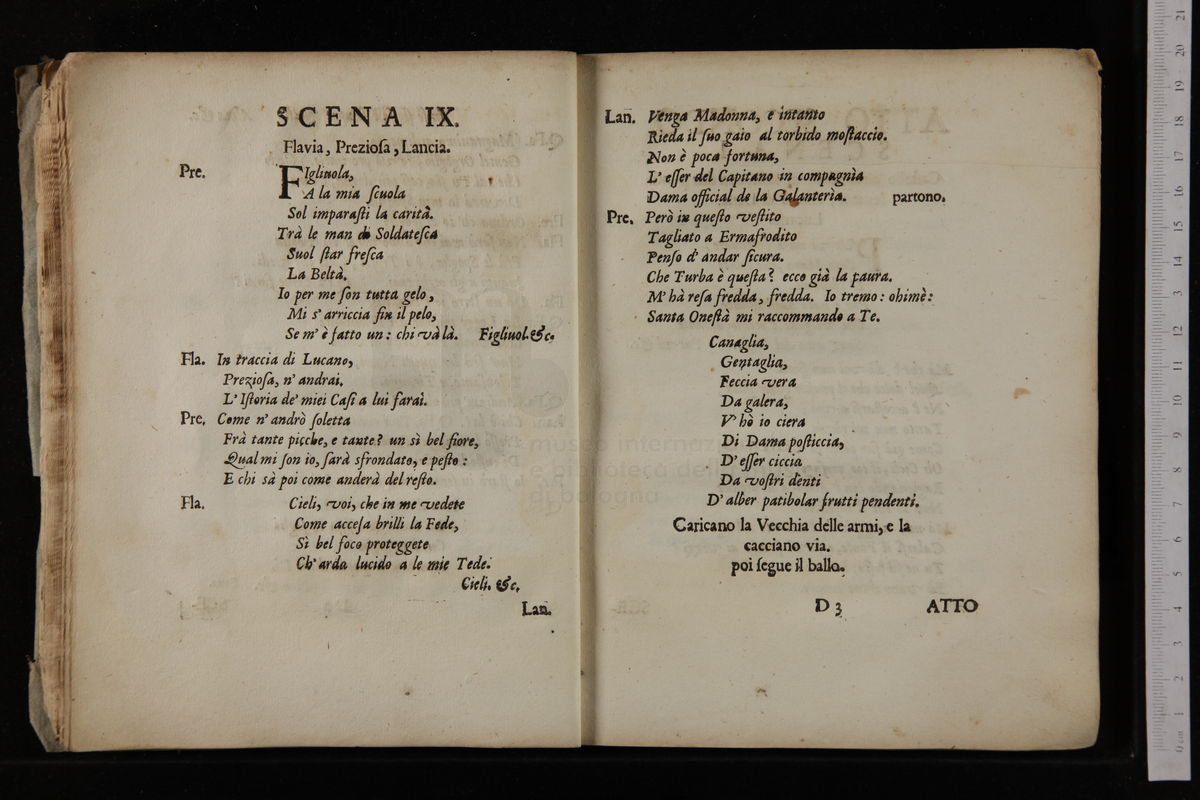 SCENA IX.
Flavia, Prezioſa, Lancia.
Pre. FIgliuola,
A la mia ſcuola
Sol imparaſti la carità.
Trà le man di Soldateſca
Suol ſtar freſca
La Beltà.
Io per me ſon tutta gelo,
Mi s'arriccia fin il pelo,
Se m'è fatto un: chi và là. Figliuol. &c.
Fla. In traccia di Lucano,
Prezioſa, n'andrai.
L'Iſtoria de' miei Caſi a lui farai.
Pre. Come n'andrò ſoletta
Frà tante picche, e tante? un sì bel fiore,
Qual mi ſon io, ſarà sfrondato, e peſto:
E chi sà poi come anderà del reſto.
Fla. Cieli, voi, che in me vedete
Come acceſa brilli la Fede,
Sì bel foco proteggete
Ch'arda lucido a le mie Tede.
Cieli. &c.
Lan.
Lan. Venga Madonna, e intanto
Rieda il ſuo gaio al torbido moſtaccio.
Non è poca fortuna,
L'eſſer del Capitano in compagnìa
Dama official de la Galanterìa. partono.
Pre. Però in queſto veſtito
Tagliato a Ermafrodito
Penſo d'andar ſicura.
Che Turba è queſta? ecco già la paura.
M'hà reſa fredda, fredda. Io tremo: ohimè:
Santa Oneſtà mi raccommando a Te.
Canaglia,
Gentaglia,
Feccia vera
Da galera,
V'hò io ciera
Di Dama poſticcia,
D'eſſer ciccia
Da voſtri denti
D'alber patibolar frutti pendenti.
Caricano la Vecchia delle armi, e la
cacciano via.
poi ſegue il ballo.
D 3 ATTO
museo internaz
e biblioteca della
di bologna